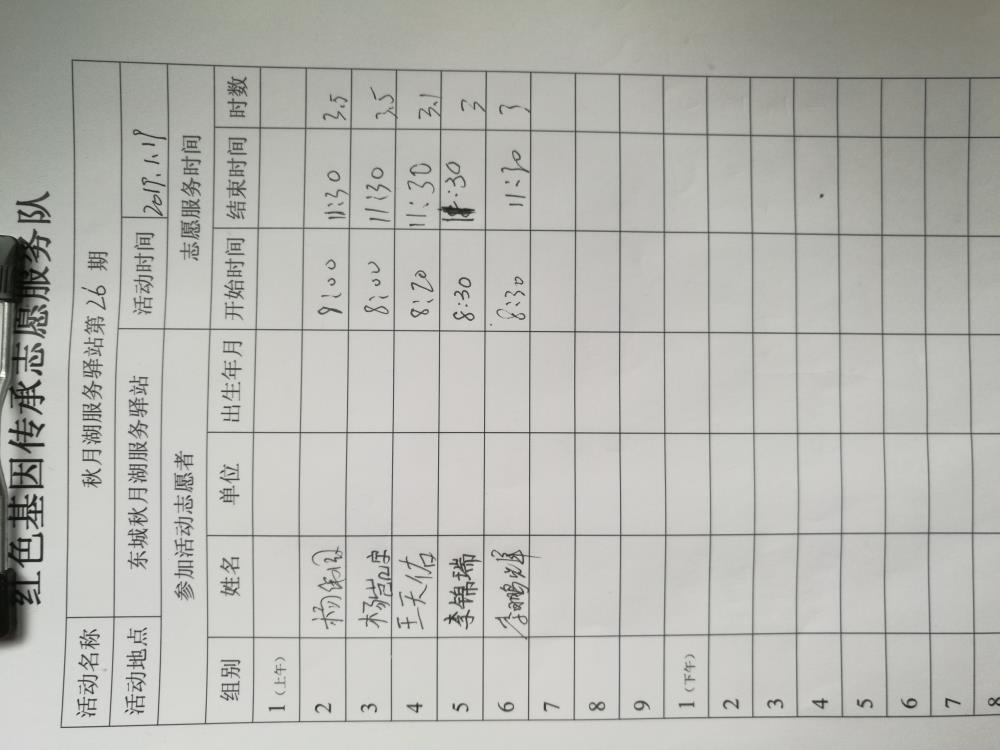 红色基因传承志愿服务队
活动名称 秋月湖服务驿站第26期
活动地点 东城秋月湖服务驿站 活动时间 2017.1.19
参加活动志愿者 志愿服务时间
组别 姓名 单位 出生年月 开始时间 结束时间 时数
1（上午）
2 :00 11:30 3.5
3 8:00 11:30 3.5
4 王天佑 8:20 11:30 3.1
5 李锦瑞 8:30 :30 3
6 李鹏辉 8:30 11:30 3
7
8
9
1（下午）
2
3
4
5
6
7
8